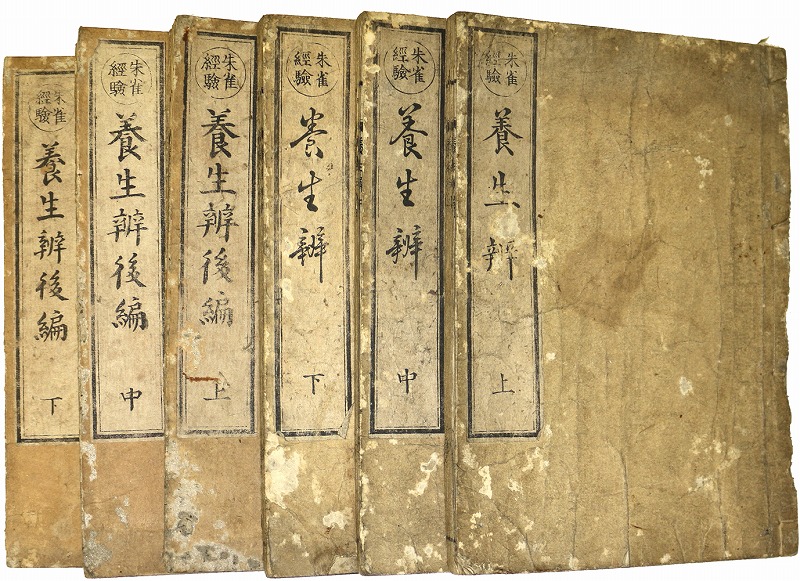 朱雀
經驗
養生辨
上
朱雀
經驗
養生辨
中
朱雀
經驗
養生辨
下
朱雀
經驗
養生辨後編
上
朱雀
經驗
養生辨後編
中
朱雀
經驗
養生辨後編
下